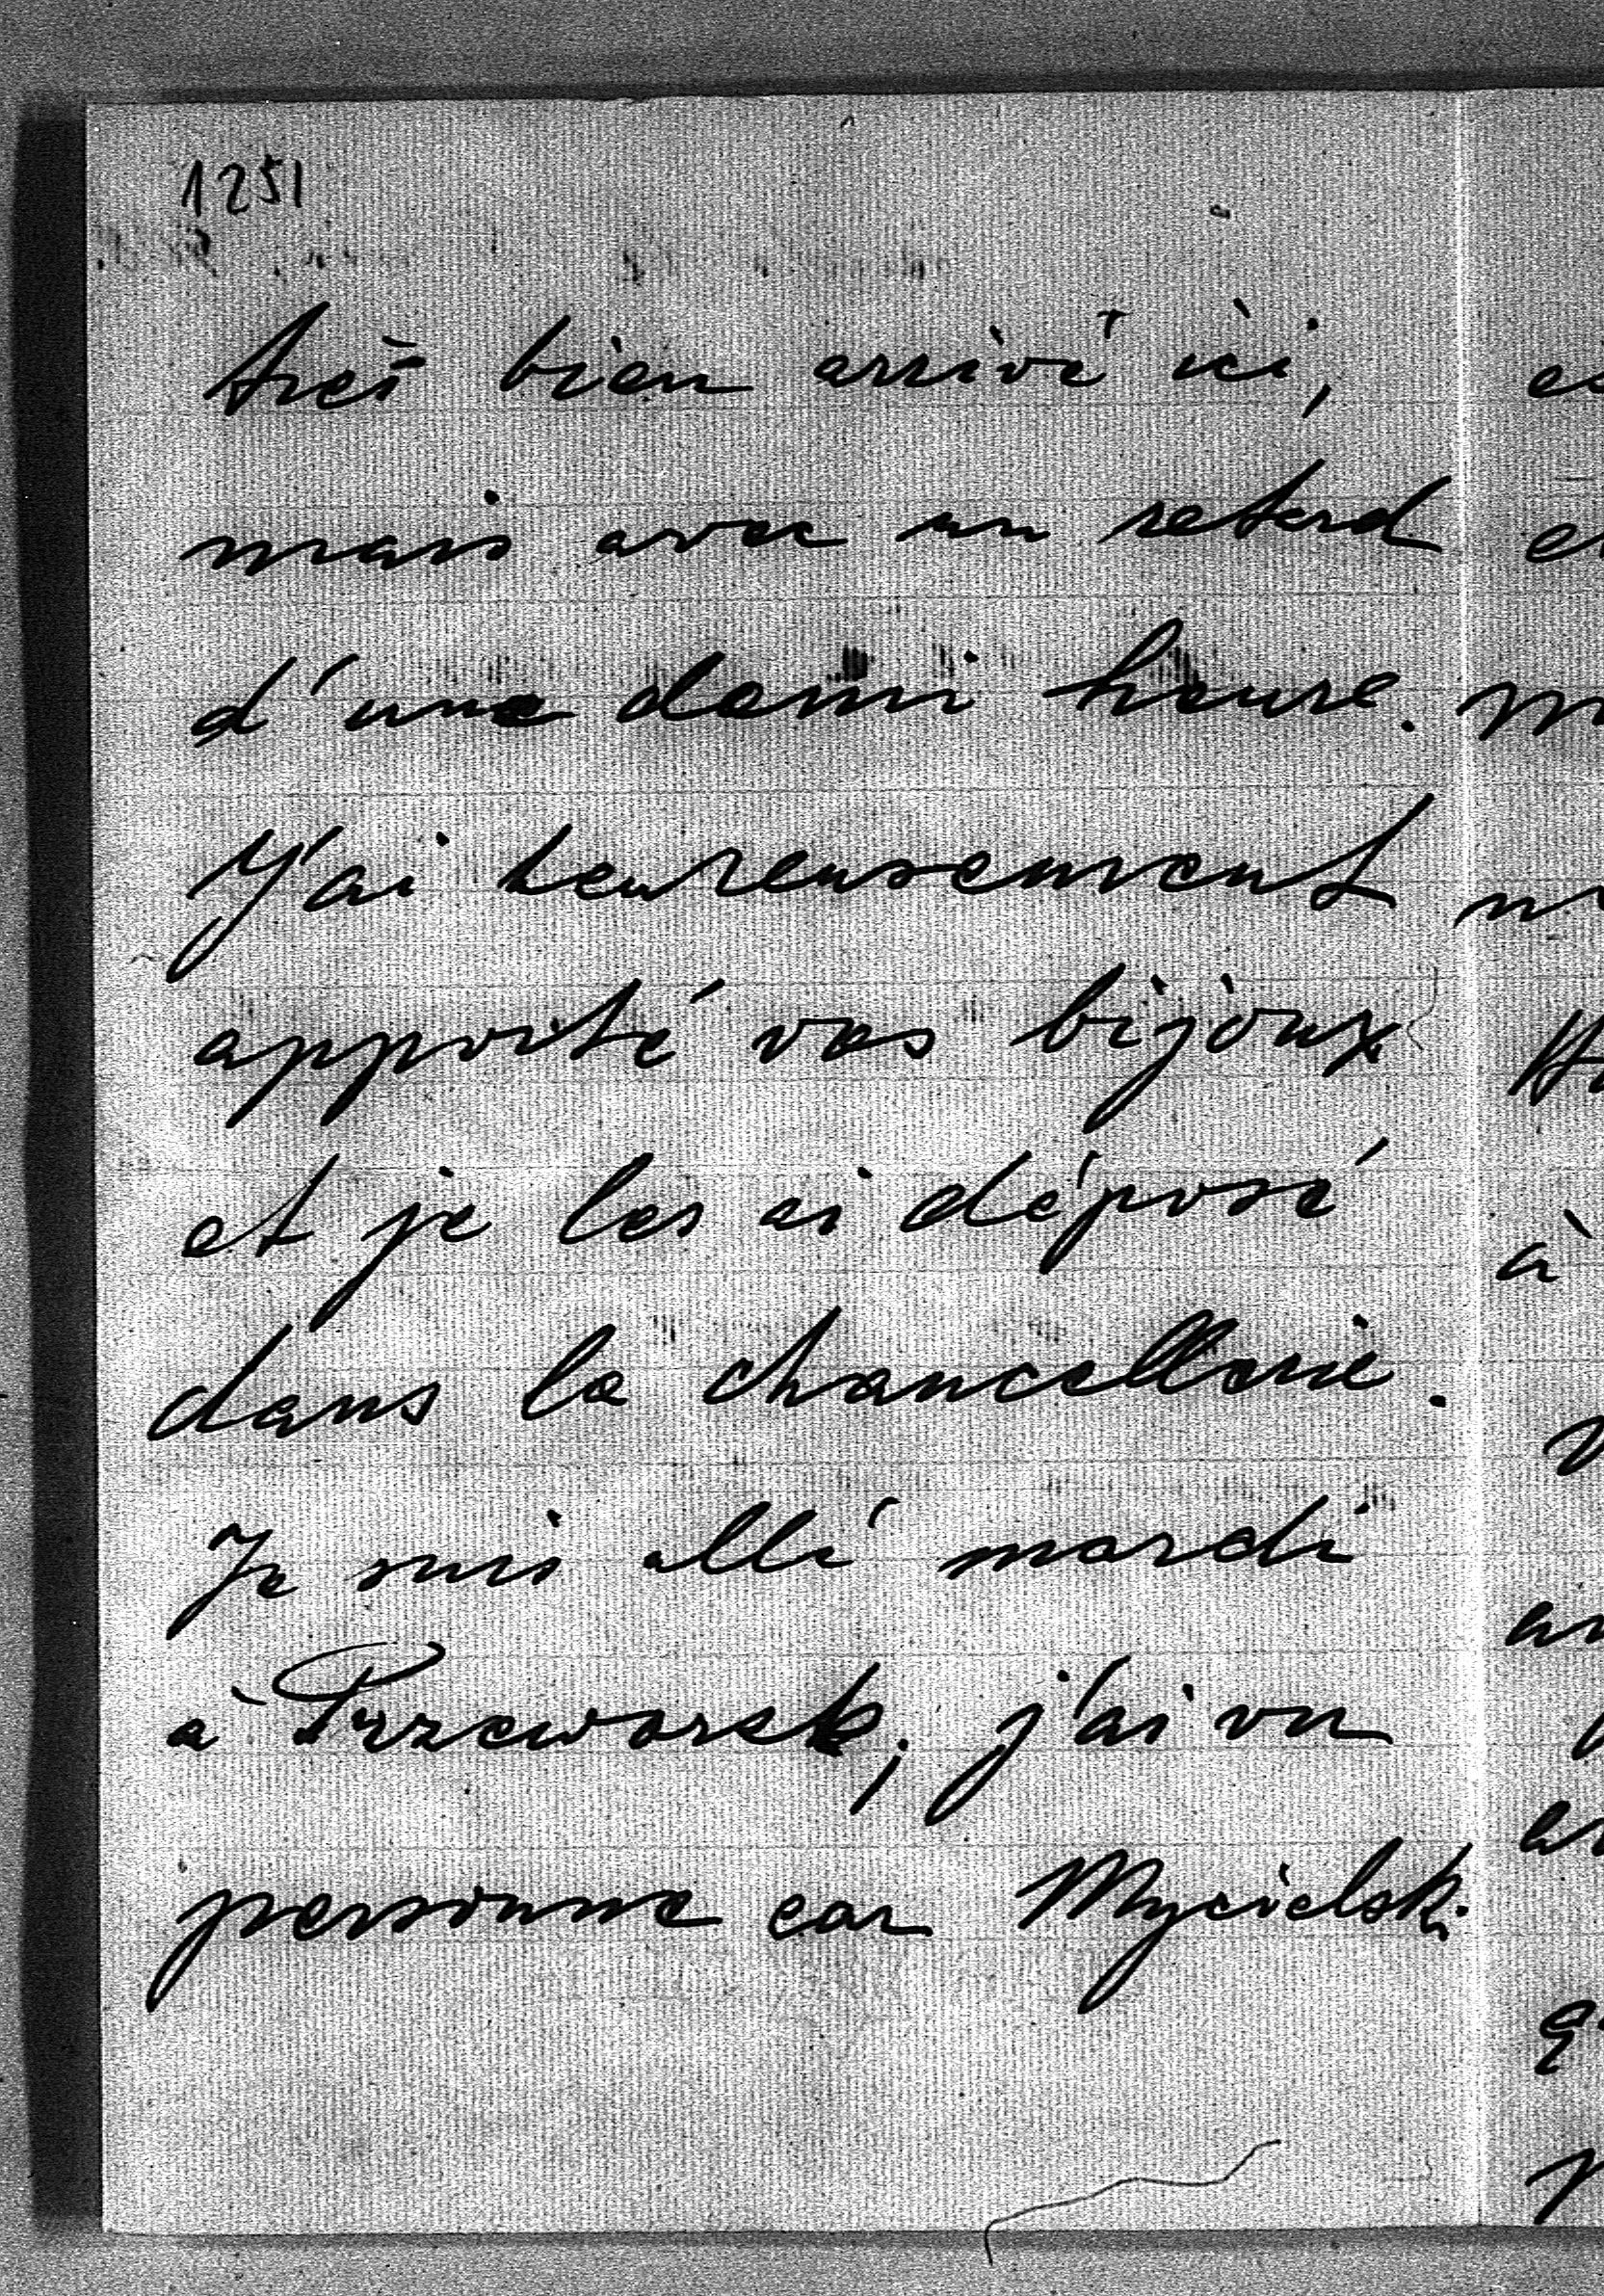 1251
très bien arrivé ici,
mais avec un retard
d'une demi heure.
J'ai heureusement
apporté vos bijoux
et je les ai déposé
dans la chancellerie.
Je suis allé mardi
à Przeworsk; j'ai vu
personne car Mycielski